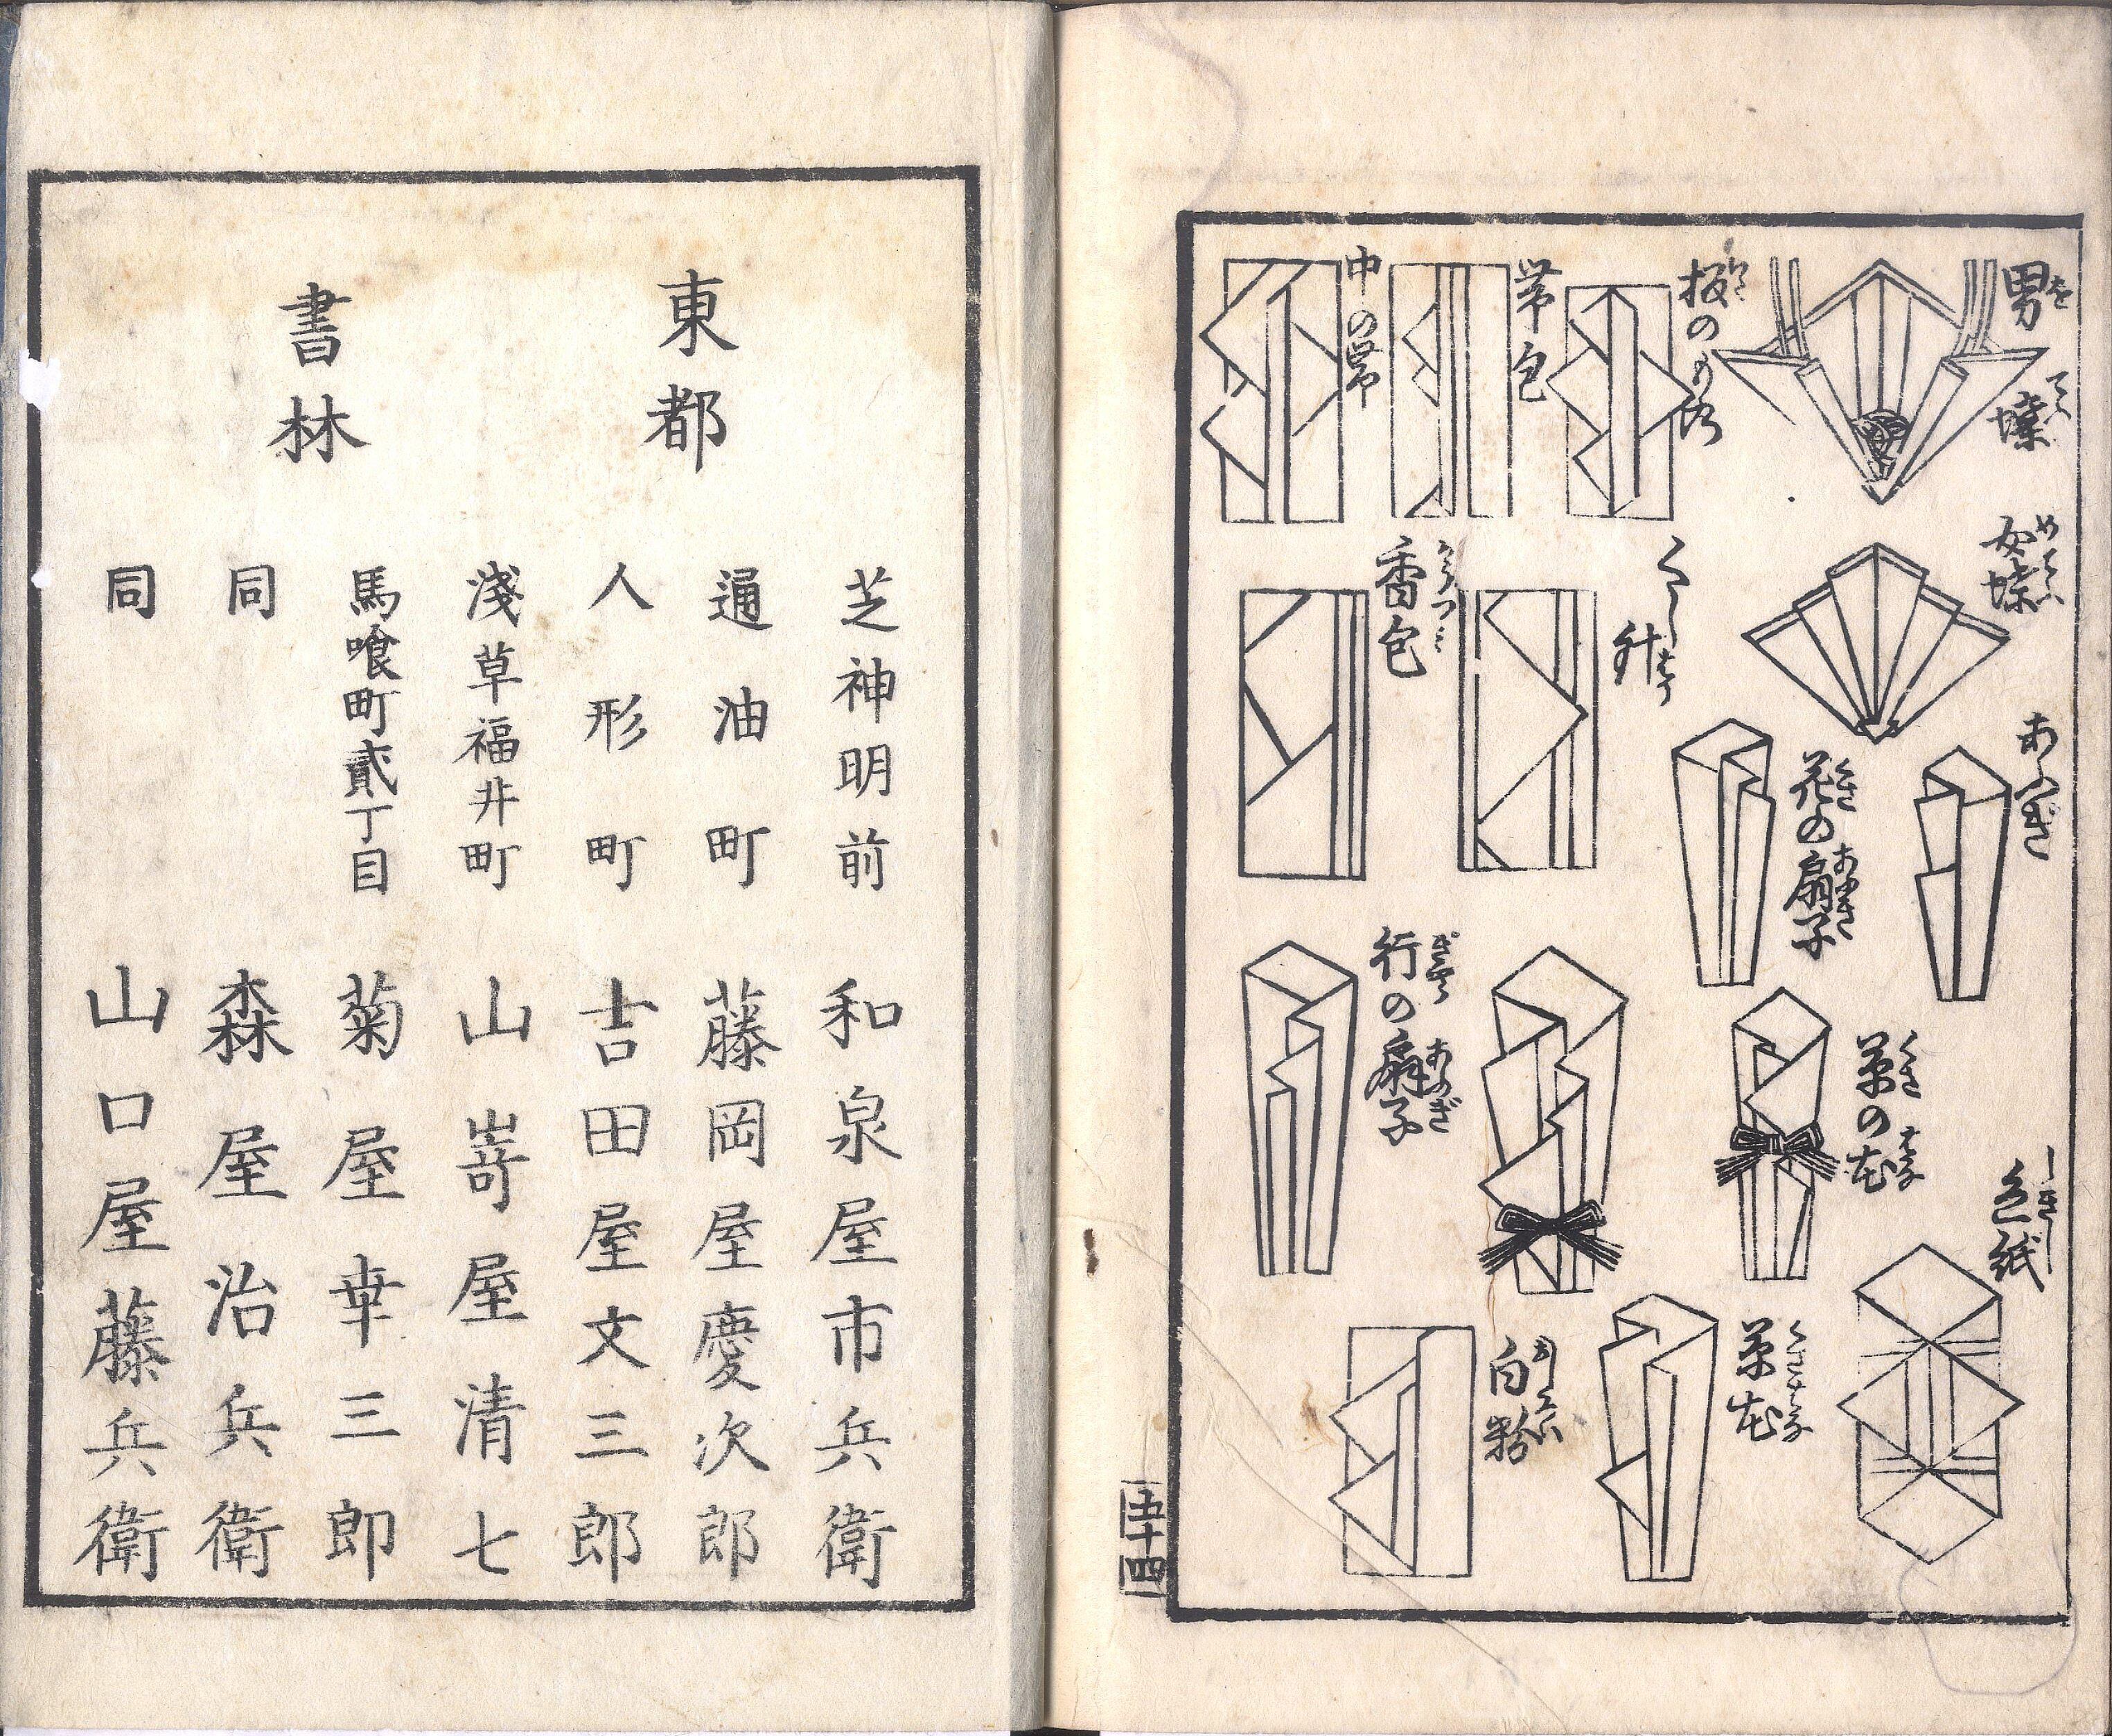 男蝶
女蝶
あふぎ
色紙
花の扇子
草の花
草花
帯包
中の帯
香包
行の扇子
白粉
五十四
東都
書林
芝神明前 和泉屋市兵衛
通油町 藤岡屋慶次郎
人形町 吉田屋文三郎
淺草福井町 山嵜屋清七
馬喰町貳丁目 菊屋幸三郎
同 森屋治兵衛
同 山口屋藤兵衛